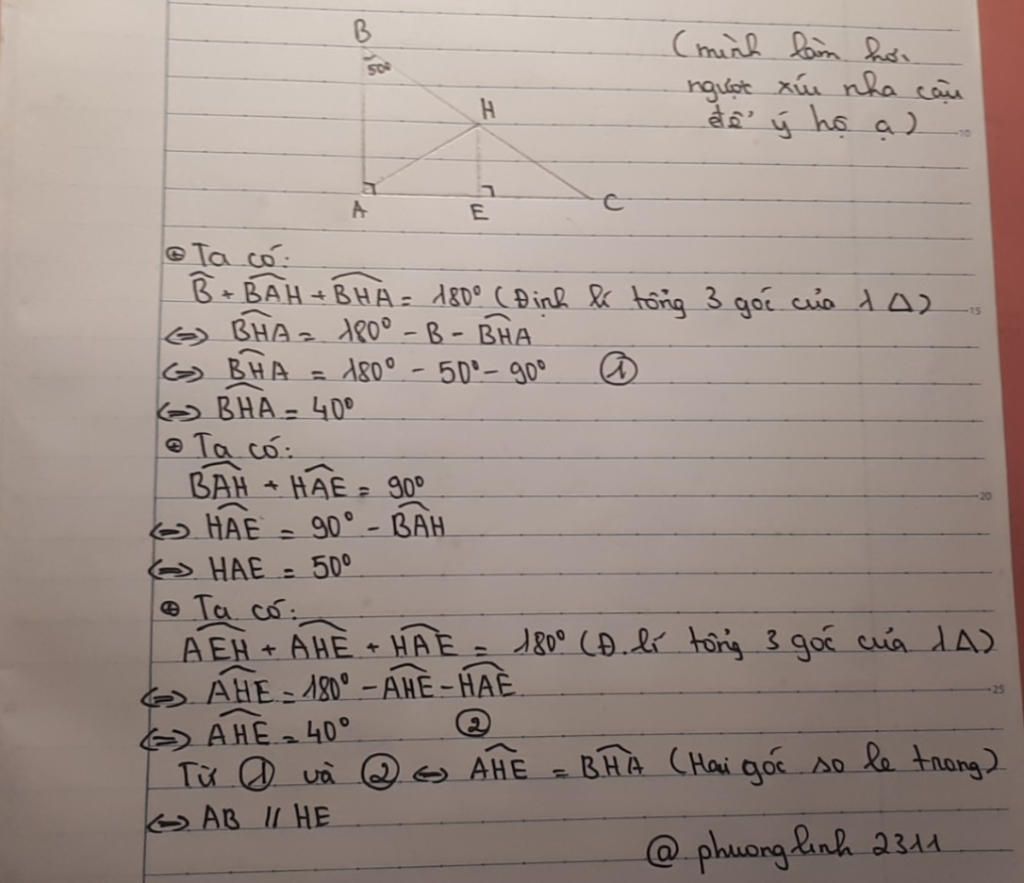 B
50°
H
A
E
C
(mình làm hơi
ngược xíu nha cậu
để ý hộ ạ)
10
⊕ Ta có:
B̂ + BAH̑ + BHȂ = 180° (Định lí tổng 3 góc của 1 Δ)
15
⇔ BHȂ = 180° - B - BHȂ
⇔ BHȂ = 180° - 50° - 90° ①
⇔ BHȂ = 40°
⊕ Ta có:
BAH̑ + HAȆ = 90°
20
⇔ HAȆ = 90° - BAH̑
⇔ HAE = 50°
⊕ Ta có:
AEH̑ + AHȆ + HAȆ = 180° (Đ.lí tổng 3 góc của 1Δ)
⇔ AHȆ = 180° - AHȆ - HAȆ
25
⇔ AHȆ = 40° ②
Từ ① và ② ⇔ AHȆ = BHȂ (Hai góc so le trong)
⇔ AB // HE
@ phuonglinh 2311